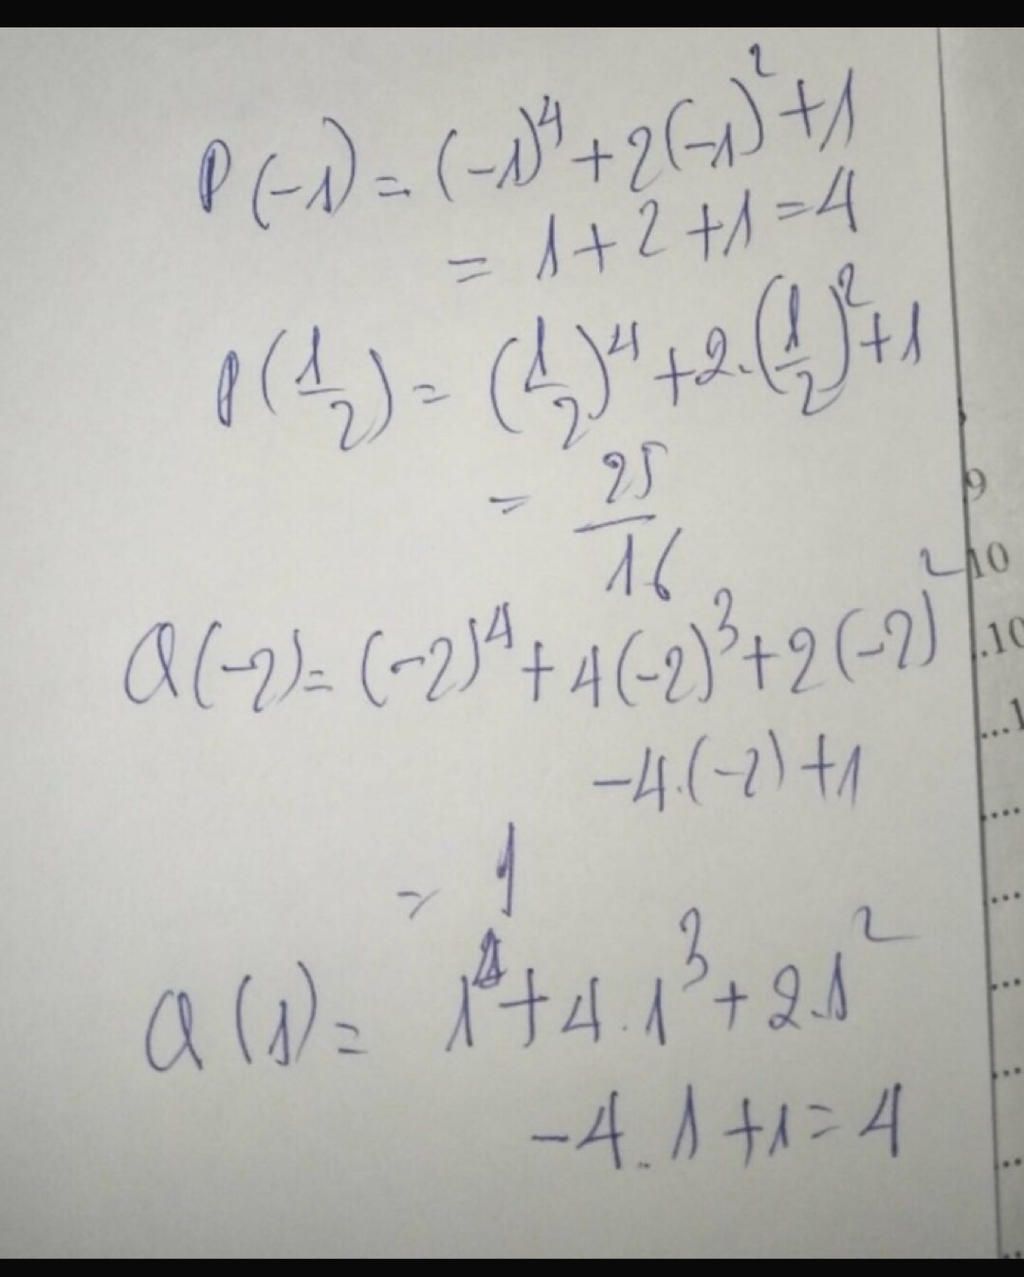 P(-1) = (-1)⁴ + 2(-1)² + 1
= 1 + 2 + 1 = 4
P(1/2) = (1/2)⁴ + 2.(1/2)² + 1
= 25/16
Q(-2) = (-2)⁴ + 4(-2)³ + 2(-2)²
-4.(-2) + 1
= 1
Q(1) = 1⁴ + 4.1³ + 2.1²
-4.1 + 1 = 4
9
10
.10
...1